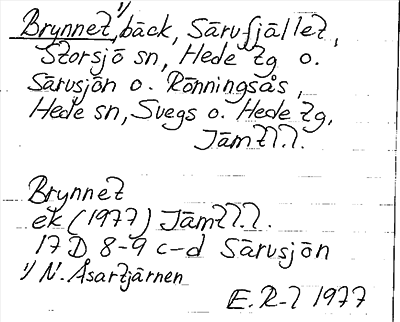 Brynnet,¹⁾ bäck, Särvfjället,
Storsjö sn, Hede tg o.
Särvsjön o. Rönningsås,
Hede sn, Svegs o. Hede tg,
Jämtl.l.
Brynnet
ek (1977) Jämtl.l.
17 D 8-9 c-d Särvsjön
¹⁾ N. Åsartjärnen
E.R-l 1977